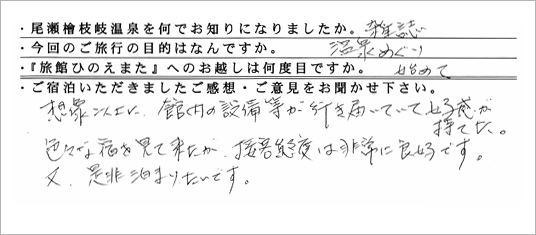 ・尾瀬檜枝岐温泉を何でお知りになりましたか。雑誌
・今回のご旅行の目的はなんですか。 温泉めぐり
・『旅館ひのえまた』へのお越しは何度目ですか。 始めて
・ご宿泊いただきましたご感想・ご意見をお聞かせ下さい。
想像以上に、館内の設備等が行き届いていて好感が
持てた。
色々な宿を見て来たが、接客態度は非常に良好です。
又、是非泊まりたいです。